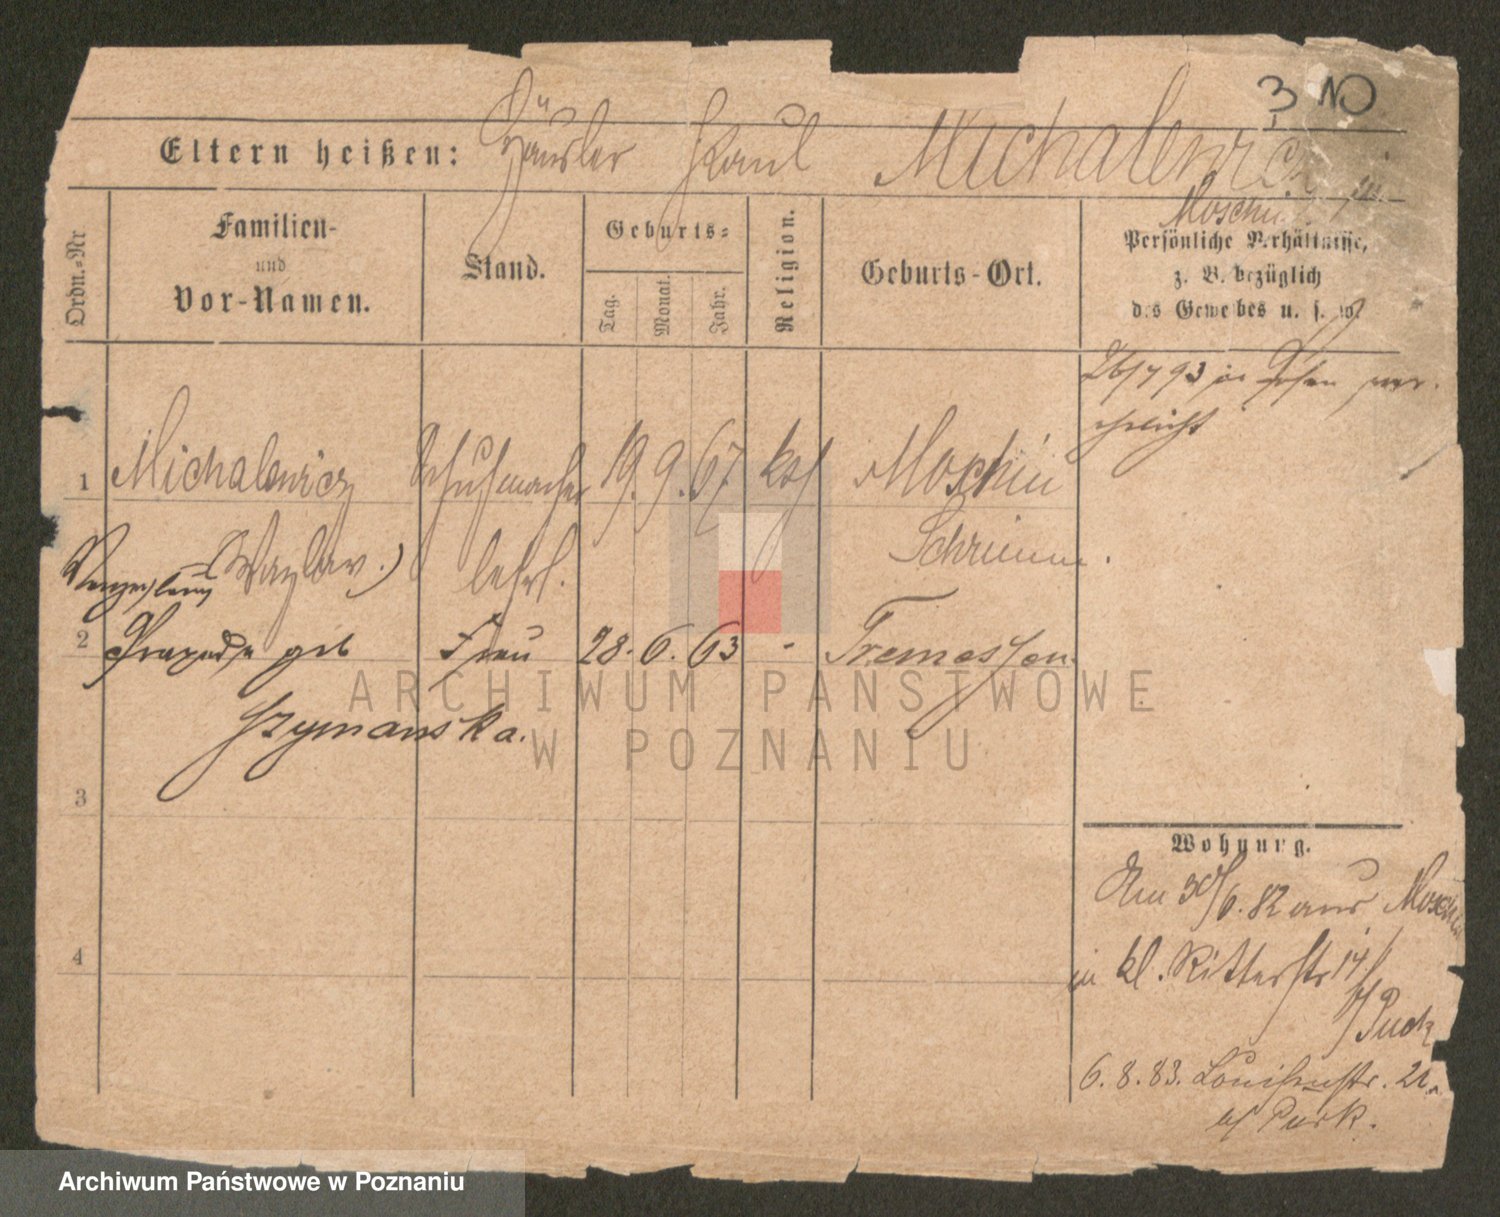 3 NO
Eltern heißen: Häusler Paul Michalewicz
Moschin
Ordn.-Nr
Familien-
und
Vor-Namen.
Stand.
Geburts-
Tag.
Monat.
Jahr.
Religion.
Geburts-Ort.
Persönliche Verhältnisse,
z. B. bezüglich
des Gewerbes u. s. w.
26/7 93 in Posen ver-
ehelicht
1 Michalewicz Schuhmacher 19. 9. 67. kath Moschin
Wazlaw.) lehrl. Schrimm.
2 Praxeda geb Frau 28. 6. 63 - Tremessen
Szymanska.
3
4
Wohnung.
Am 30/6. 82 aus Moschin
in kl. Ritterstr 14
6. 8. 83. Louisenstr. 21.
ARCHIWUM PAŃSTWOWE
W POZNANIU
Archiwum Państwowe w Poznaniu